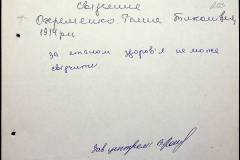 свідчення
Охременко Ганна Тихонівна
1914 р.н.
за станом здоров'я не може
свідчити.
Зав. центром: